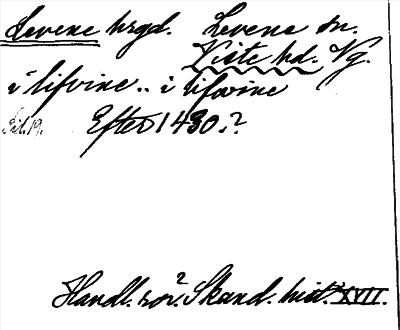 Levene hrgd. Levene sn.
Viste hd. Vg.
i lifvine.. i lifvine
Efter 1430.?
Handl. rör? Skand. hist. XVII.